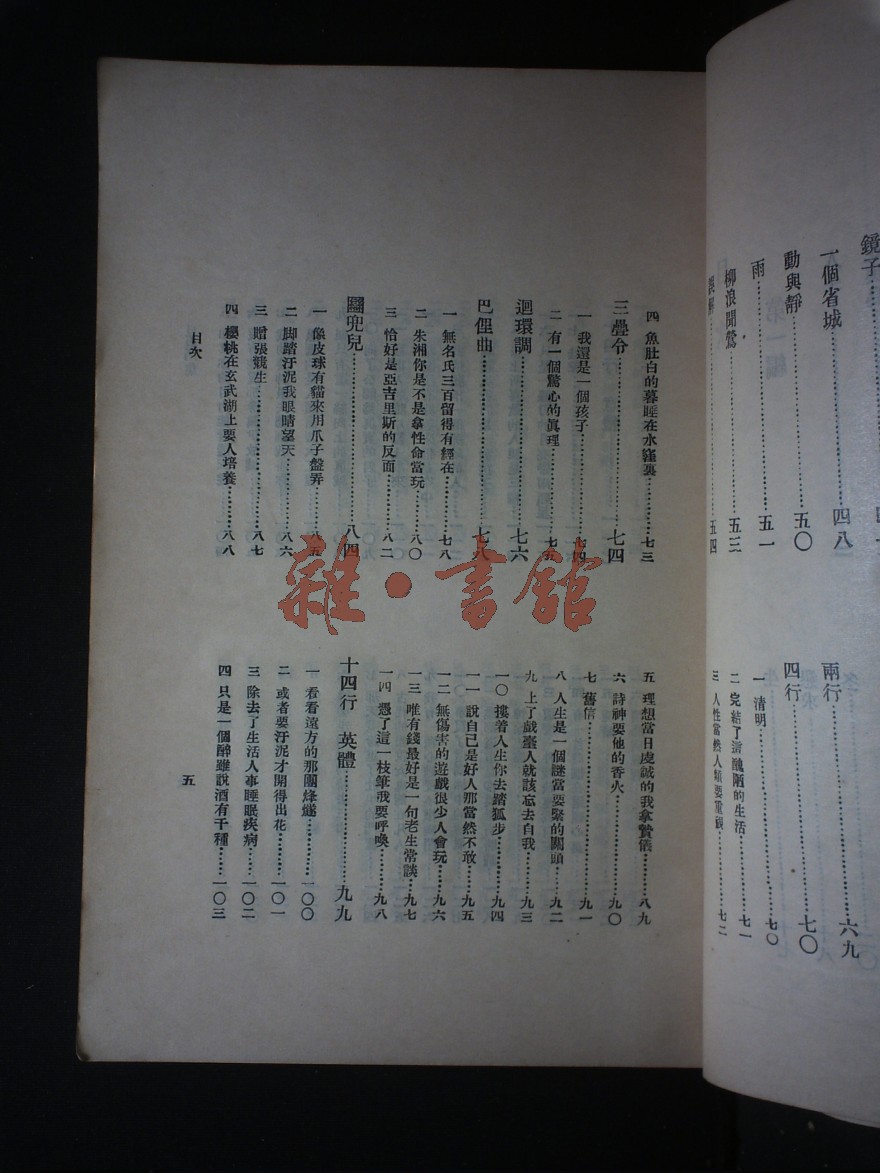 鏡子
一個省城……四八
動與靜……五〇
雨……五一
柳浪聞鶯……五三
……五四
兩行……六九
四行……七〇
一 清明……七〇
二 完結了這醜陋的生活……七一
三 人性當然人類要重視……七二
四 魚肚白的暮睡在水窪裏……七三
三疊令……七四
一 我還是一個孩子……七四
二 有一個驚心的眞理……七五
迴環調……七六
巴俚曲……七八
一 無名氏三百留得有經在……七八
二 朱湘你是不是拿性命當玩……八〇
三 恰好是亞吉里斯的反面……八二
圝兜兒……八四
一 像皮球有貓來用爪子盤弄……八五
二 脚踏汙泥我眼睛望天……八六
三 贈張競生……八七
四 櫻桃在玄武湖上要人培養……八八
五 理想當日虔誠的我拿贄儀……八九
六 詩神要他的香火……九〇
七 舊信……九一
八 人生是一個謎當要緊的關頭……九二
九 上了戲臺人就該忘去自我……九三
一〇 摟着人生你去踏狐步……九四
一一 說自已是好人那當然不敢……九五
一二 無傷害的遊戲很少人會玩……九六
一三 唯有錢最好是一句老生常談……九七
一四 憑了這一枝筆我要呼喚……九八
十四行 英體……九九
一 看看遠方的那團烽燧……一〇〇
二 或者要汙泥才開得出花……一〇一
三 除去了生活人事睡眠疾病……一〇二
四 只是一個醉雖說酒有千種……一〇三
目次
五
雜·書館